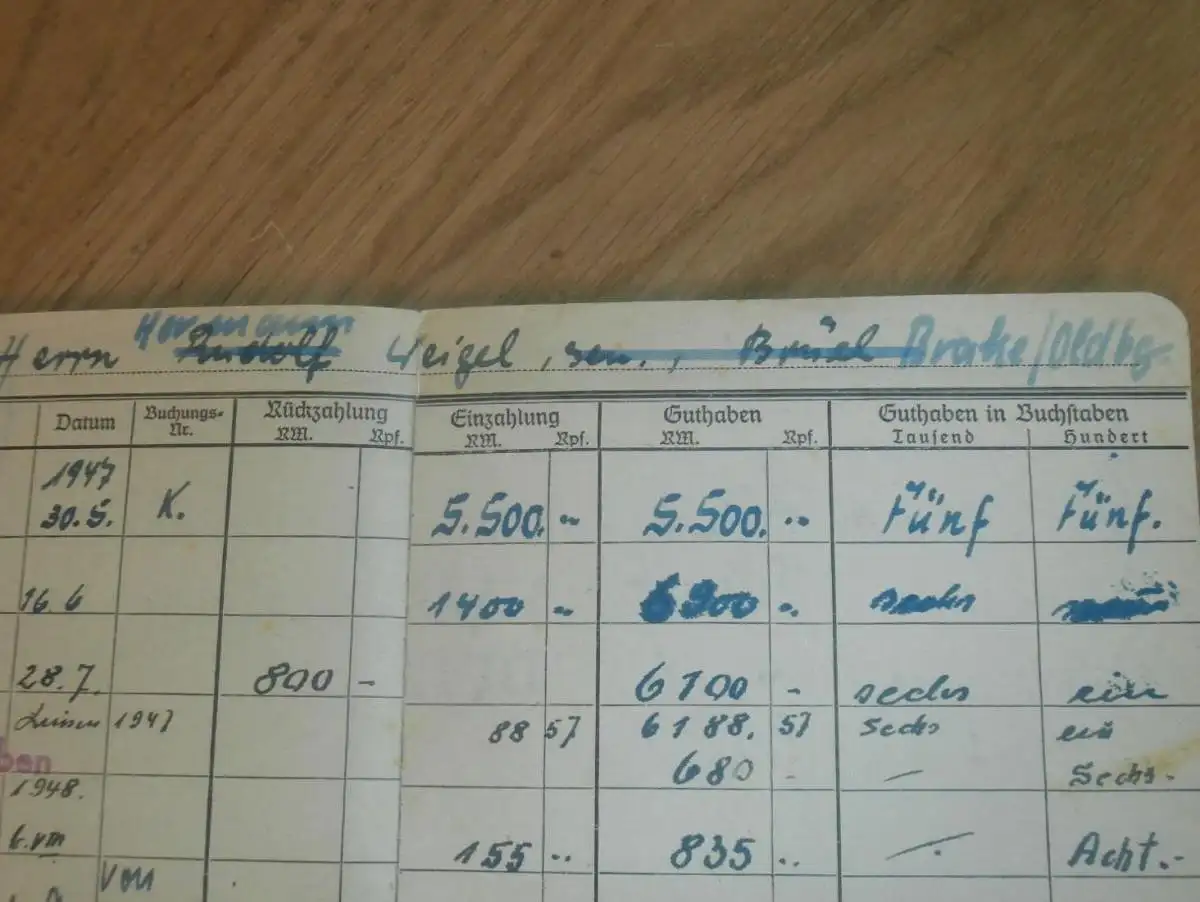 Hermann
Herrn Rudolf Weigel, sen., Brüel Brake/Oldbg.
Datum Buchungs-Nr. Rückzahlung RM. Rpf. Einzahlung RM. Rpf. Guthaben RM. Rpf. Guthaben in Buchstaben Tausend Hundert
1947
30.5. K. 5.500. -- 5.500. -- Fünf Fünf.
16.6 1400 -- 6900 -- sechs
28.7. 800 - 6100 - sechs ein
Zinsen 1947 88 57 6188. 57 Sechs ein
ben 680 - — Sechs.-
1948.
155 -- 835 -- — Acht.-
von